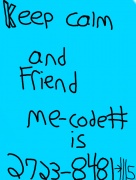 Keep calm
and
Friend
me-code#
is
2723-8481-